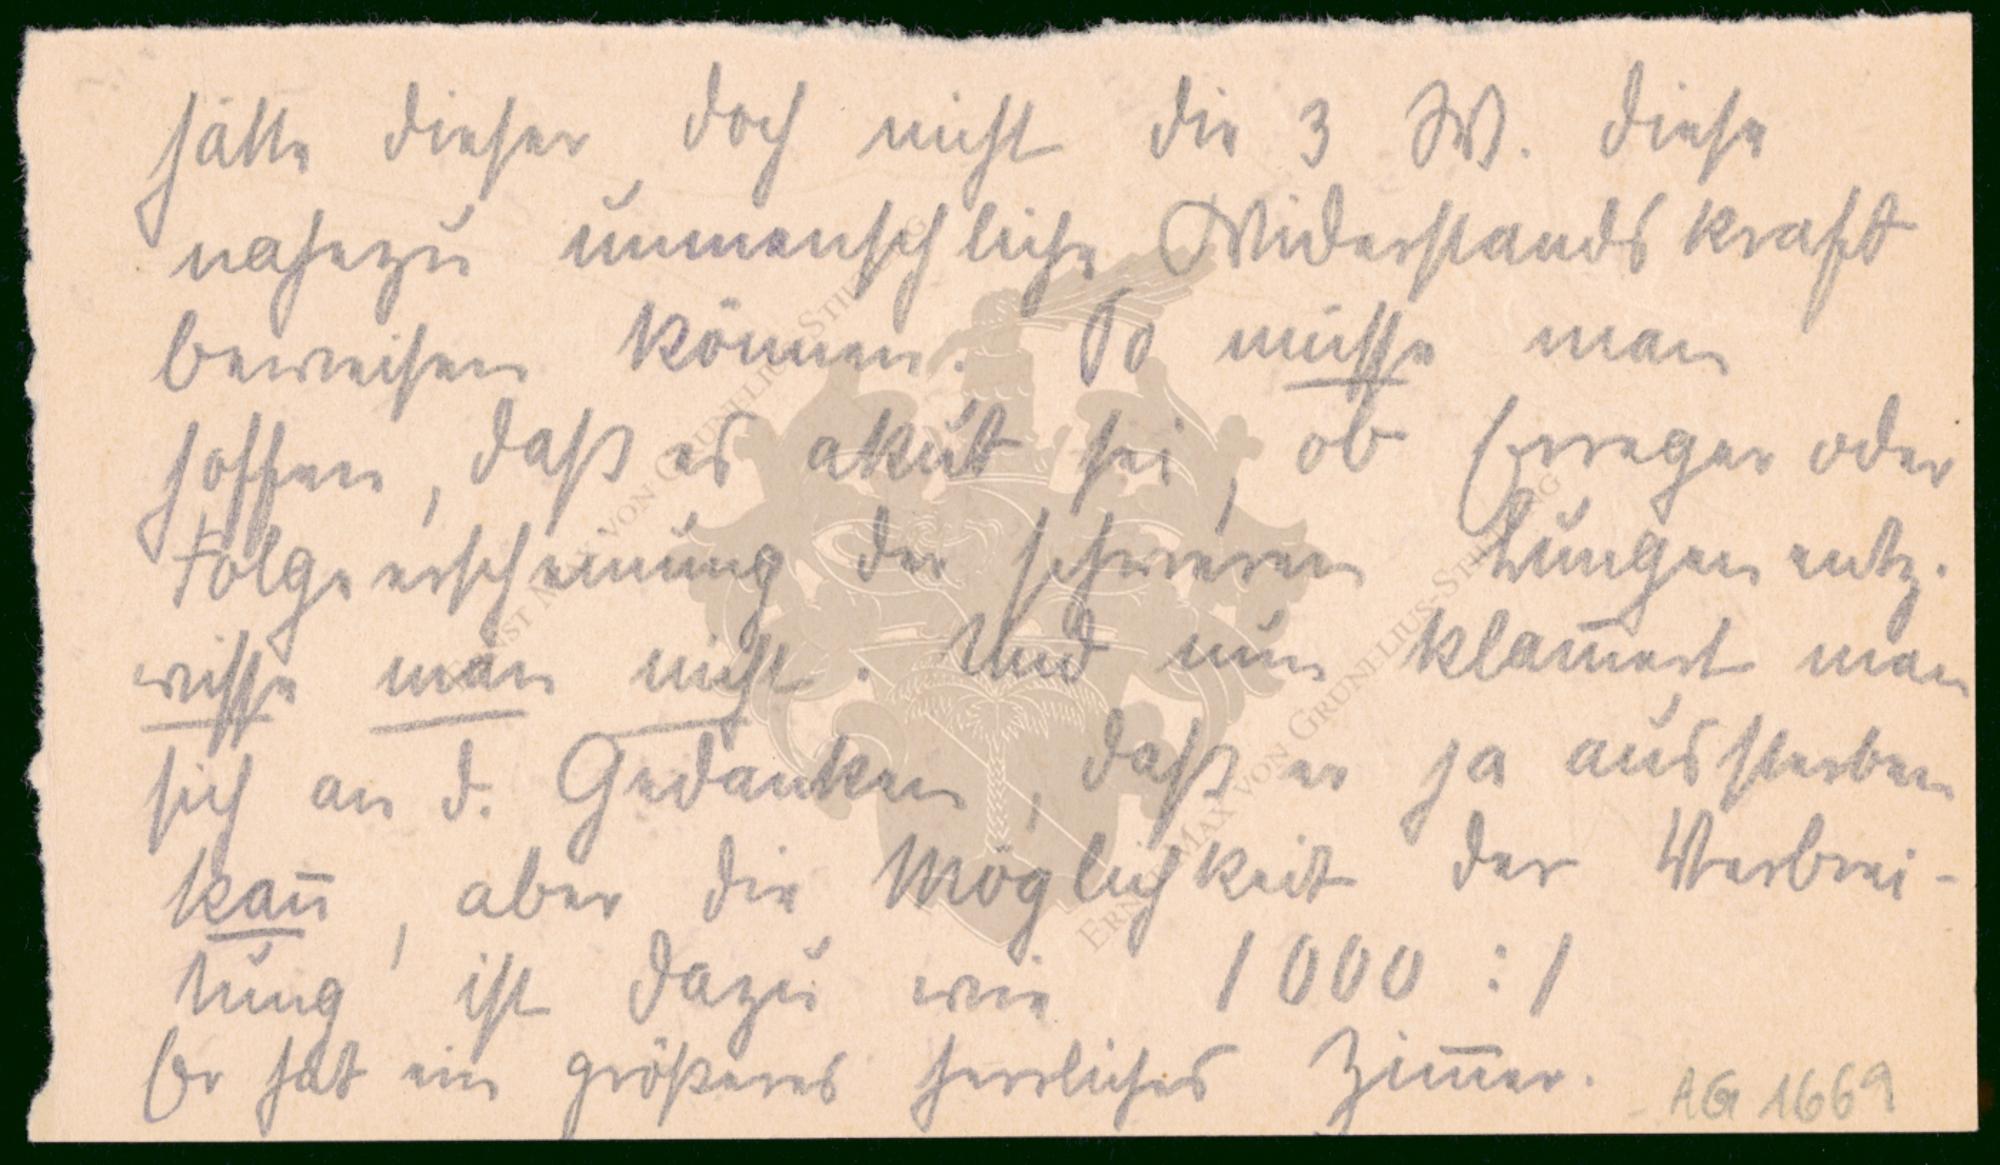 hätte dieser doch nicht die 3 W. diese
nahezu unmenschliche Widerstandskraft
beweisen können. So müsse man
hoffen, daß es akut sei, ob Erreger oder
Folgeerscheinung der schweren Lungenentz.
wisse man nicht. Und nun klam̅ert man
sich an d. Gedanken, daß er ja aussterben
kan̅, aber die Möglichkeit der Verbrei-
tung ist dazu wie 1000 : 1
Er hat ein größeres herrliches Zim̅er.
AG 1669
ERNST MAX VON GRUNELIUS-STIFTUNG
ERNST MAX VON GRUNELIUS-STIFTUNG